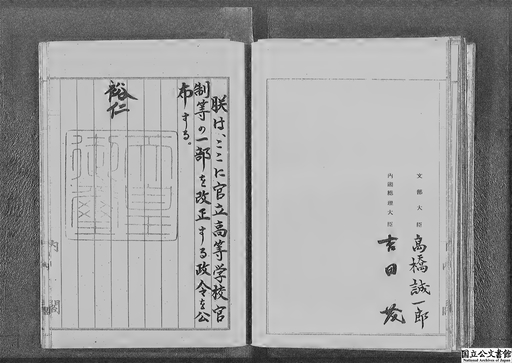 朕は、ここに官立高等学校官
制等の一部を改正する政令を公
布する。
裕仁
天皇
御璽
内閣
文部大臣 高橋誠一郎
内閣総理大臣 吉田茂
国立公文書館
National Archives of Japan